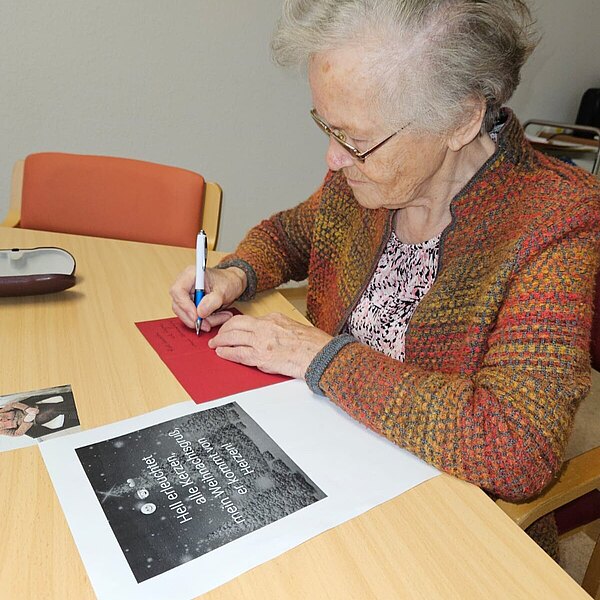 Hell erleuchtet
alle Kerzen,
mein Weihnachtsgruß,
er kommt von
Herzen!